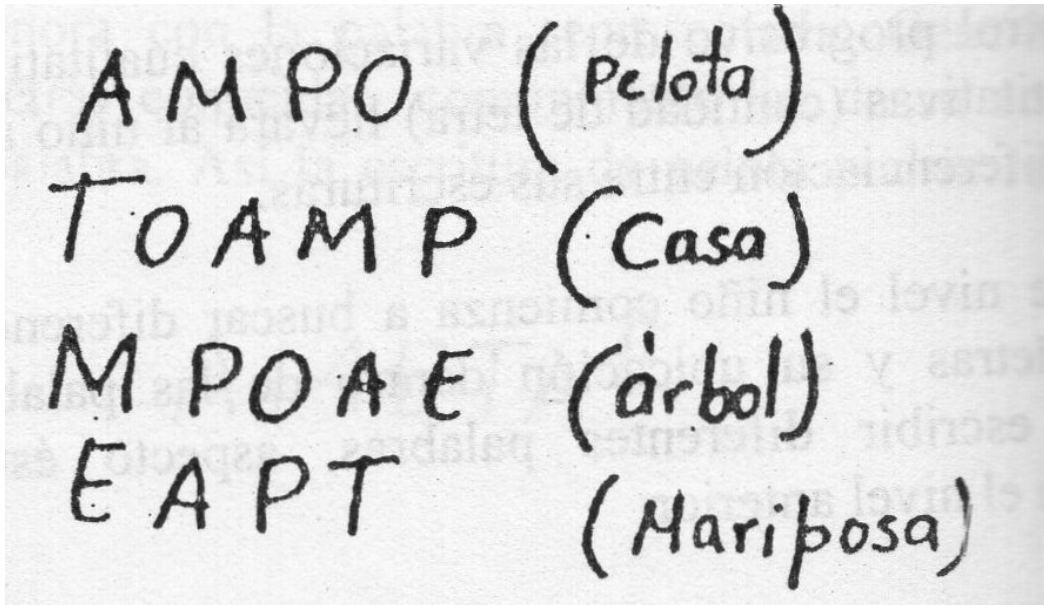 AMPO (pelota)
TOAMP (Casa)
MPOAE (árbol)
EAPT (Mariposa)